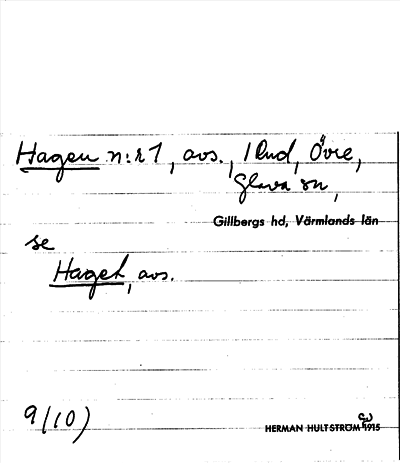 Hagen n:r 1, avs., / Rud, Övre,
Glava sn,
Gillbergs hd, Värmlands län
se
Haget, avs.
9/10)
HERMAN HULTSTRÖM 1915